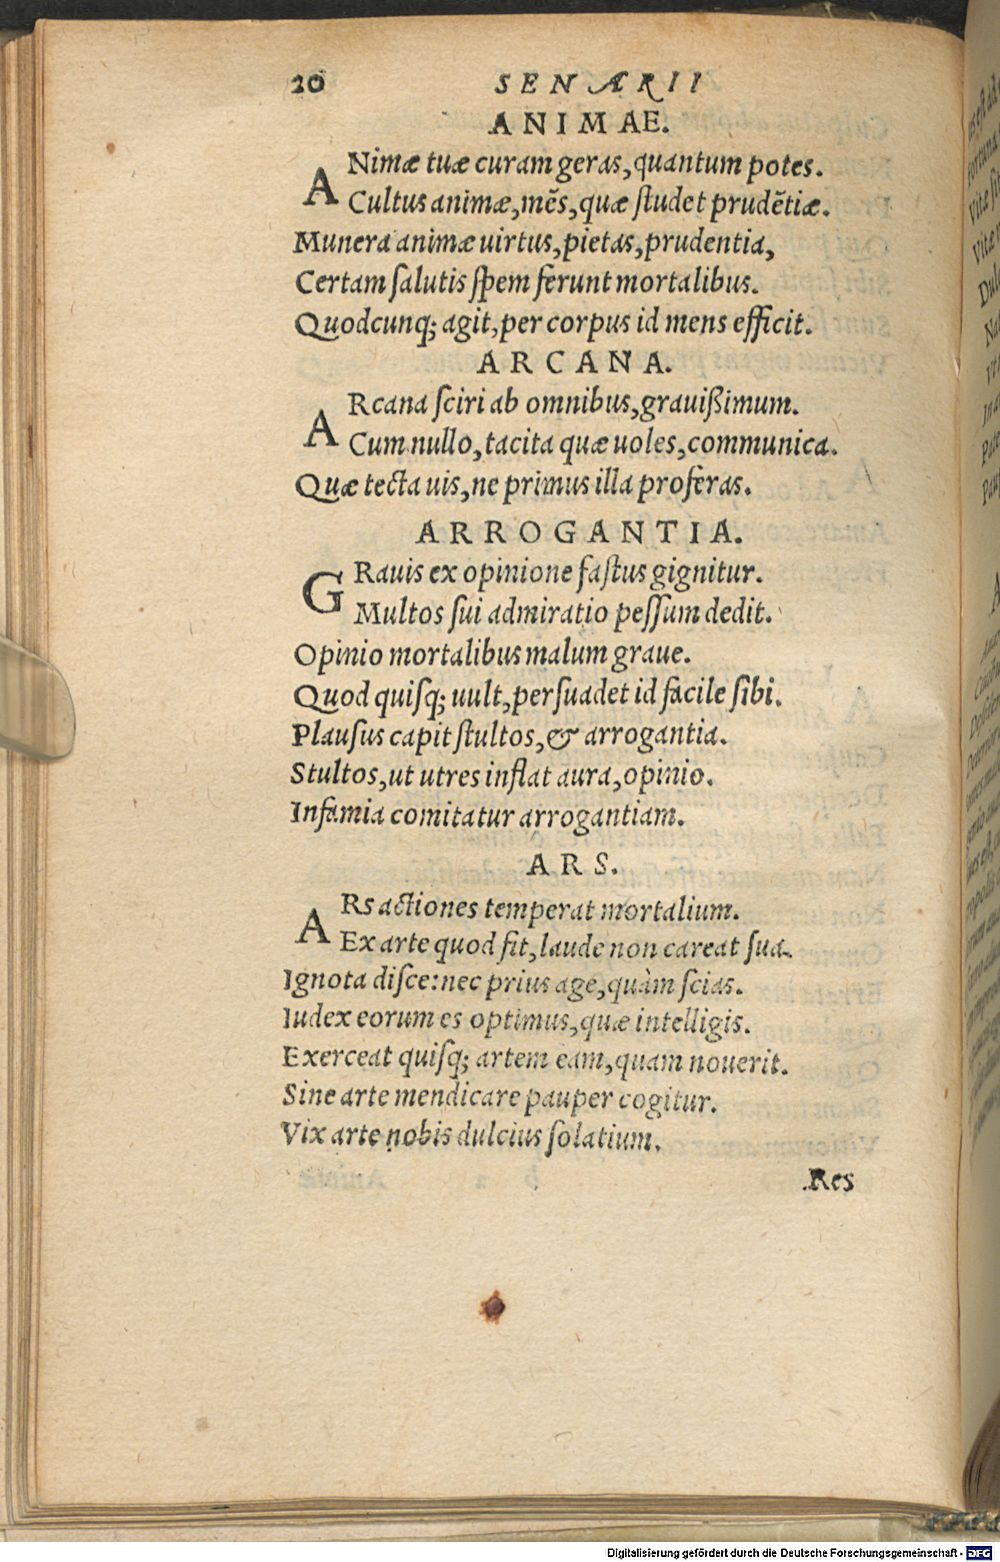 20 SENARII
ANIMAE.
ANimæ tuæ curam geras, quantum potes.
Cultus animæ, mēs, quæ studet prudētiæ.
Munera animæ uirtus, pietas, prudentia,
Certam salutis spem ferunt mortalibus.
Quodcunq; agit, per corpus id mens efficit.
ARCANA.
ARcana sciri ab omnibus, grauißimum.
Cum nullo, tacita quæ uoles, communica.
Quæ tecta uis, ne primus illa proferas.
ARROGANTIA.
GRauis ex opinione fastus gignitur.
Multos sui admiratio pessum dedit.
Opinio mortalibus malum graue.
Quod quisq; uult, persuadet id facile sibi.
Plausus capit stultos, & arrogantia.
Stultos, ut utres inflat aura, opinio.
Infamia comitatur arrogantiam.
ARS.
ARs actiones temperat mortalium.
Ex arte quod fit, laude non careat sua.
Ignota disce: nec prius age, quàm scias.
Iudex eorum es optimus, quæ intelligis.
Exerceat quisq; artem eam, quam nouerit.
Sine arte mendicare pauper cogitur.
Vix arte nobis dulcius solatium.
Res
Digitalisierung gefördert durch die Deutsche Forschungsgemeinschaft - DFG